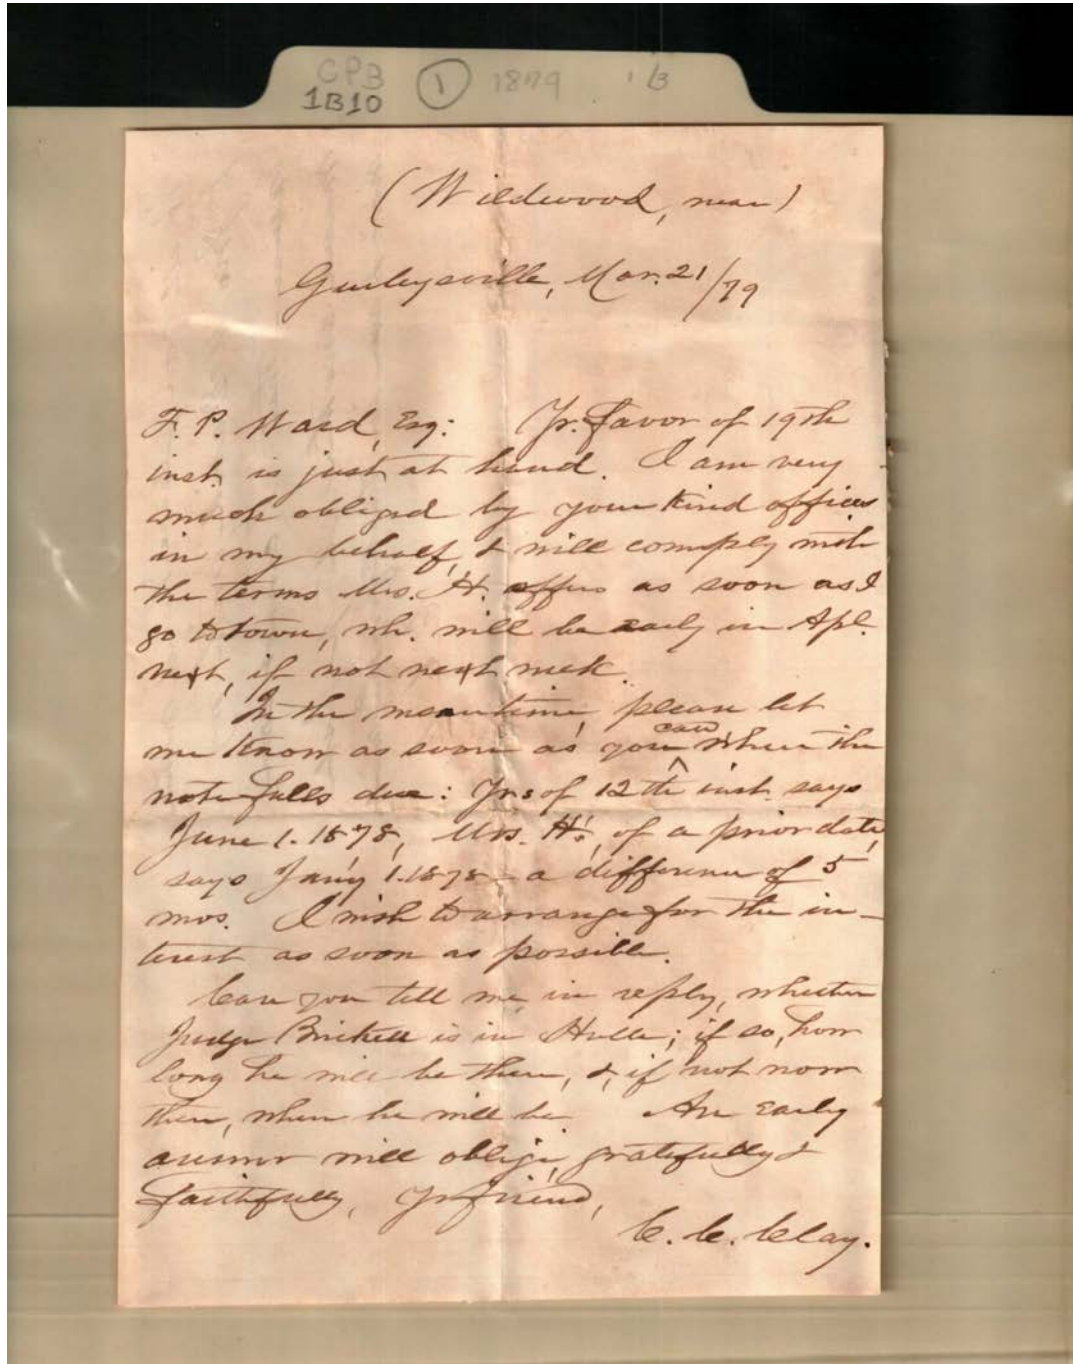 CPB
1B10 1 1879 1/3
(Wildwood, near)
Gurleysville, Mar. 21/79
F. P. Ward, Esq: Yr. favor of 19th
inst. is just at hand. I am very
much obliged by your kind offices
in my behalf, & will comply with
the terms Mrs. H. offers as soon as I
go to town, wh. will be early in Apl.
next, if not next week.
In the meantime, please let
me know as soon as you can when the
note falls due: Yrs of 12th inst. says
June 1. 1878, Mrs. H's, of a prior date,
says Jany 1. 1878 - a difference of 5
mos. I wish to arrange for the in-
terest as soon as possible.
Can you tell me, in reply, whether
Judge Brickell is in Hville; if so, how
long he will be there, &, if not now
there, when he will be. An early
answer will oblige, gratefully &
faithfully, Yr friend,
C. C. Clay.